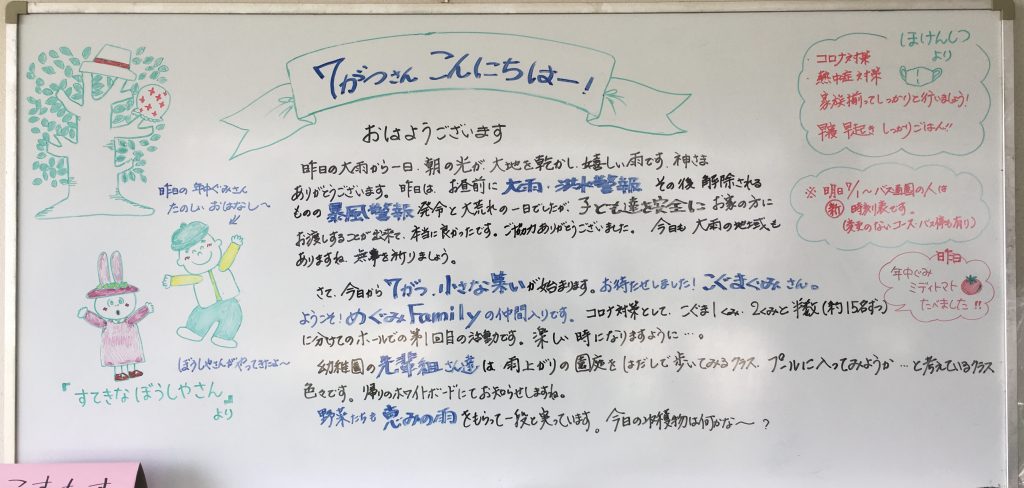 7がつさん こんにちはー!
おはようございます
昨日の大雨から一日、朝の光が、大地を乾かし、嬉しい雨です。神さま
ありがとうございます。昨日は、お昼前に 大雨・洪水警報 その後 解除される
ものの 暴風警報 発令と大荒れの一日でしたが、子ども達を安全に お家の方に
お渡しすることが出来て、本当に良かったです。ご協力ありがとうございました。 今日も 大雨の地域も
ありますね、無事を祈りましょう。
さて、今日から 7がつ、小さな集いが始まります。お待たせしました! こぐまぐみさん。
ようこそ! めぐみFamilyの仲間入りです。 コロナ対策として、こぐま1くみ、2くみと 半数(約15名ずつ)
に分けてのホールでの第1回目の活動です。楽しい時になりますように…。
幼稚園の 先輩組さん達 は 雨上がりの園庭をはだしで歩いてみるクラス プールに入ってみようか…と考えているクラス
色々です。帰りのホワイトボードにてお知らせしますね。
野菜たちも 恵みの雨 をもらって一段と実っています。今日の収穫物は何かな〜?
昨日の年中ぐみさん
たのしいおはなし〜
ぼうしやさんがやってきたよ〜
『すてきなぼうしやさん』
より
ほけんしつ
より
・コロナ対策
・熱中症対策
家族揃ってしっかりと行いましょう!
早寝 早起き しっかりごはん!!
※ 明日7/1〜バス通園の人は
新 時刻表です。
(変更のないコース・バス停も有り)
昨日
年中ぐみ
ミディトマト
たべました!!